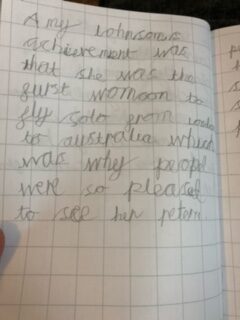 Amy Johnsons
achievement was
that she was the
first womoon to
fly solo from
to australia which
was why peopel
were so pleased
to see her retern